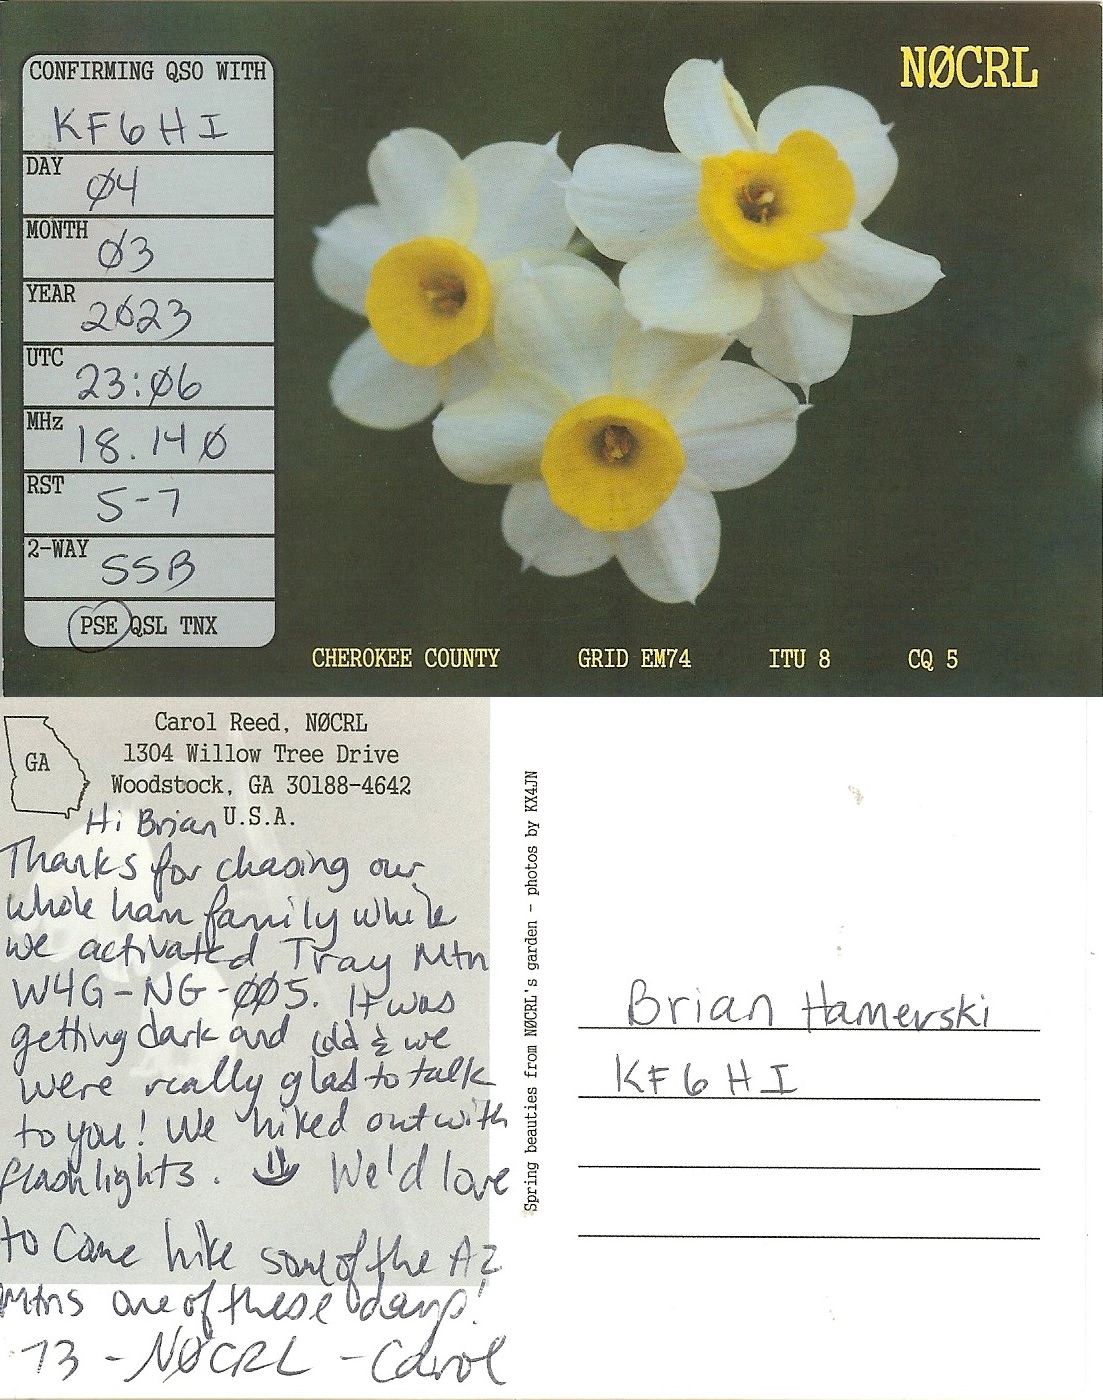 CONFIRMING QSO WITH
KF6HI
DAY Ø4
MONTH Ø3
YEAR 2Ø23
UTC 23:Ø6
MHz 18.14Ø
RST 5-7
2-WAY SSB
PSE QSL TNX
NØCRL
CHEROKEE COUNTY GRID EM74 ITU 8 CQ 5
GA
Carol Reed, NØCRL
1304 Willow Tree Drive
Woodstock, GA 30188-4642
U.S.A.
Hi Brian
Thanks for chasing our
whole ham family while
we activated Tray Mtn
W4G-NG-ØØ5. It was
getting dark and cold & we
were really glad to talk
to you! We hiked out with
flashlights. We'd love
to come hike some of the AZ
Mtns one of these days!
73 - NØCRL - Carol
Spring beauties from NØCRL's garden - photos by KX4JN
Brian Hamerski
KF6HI